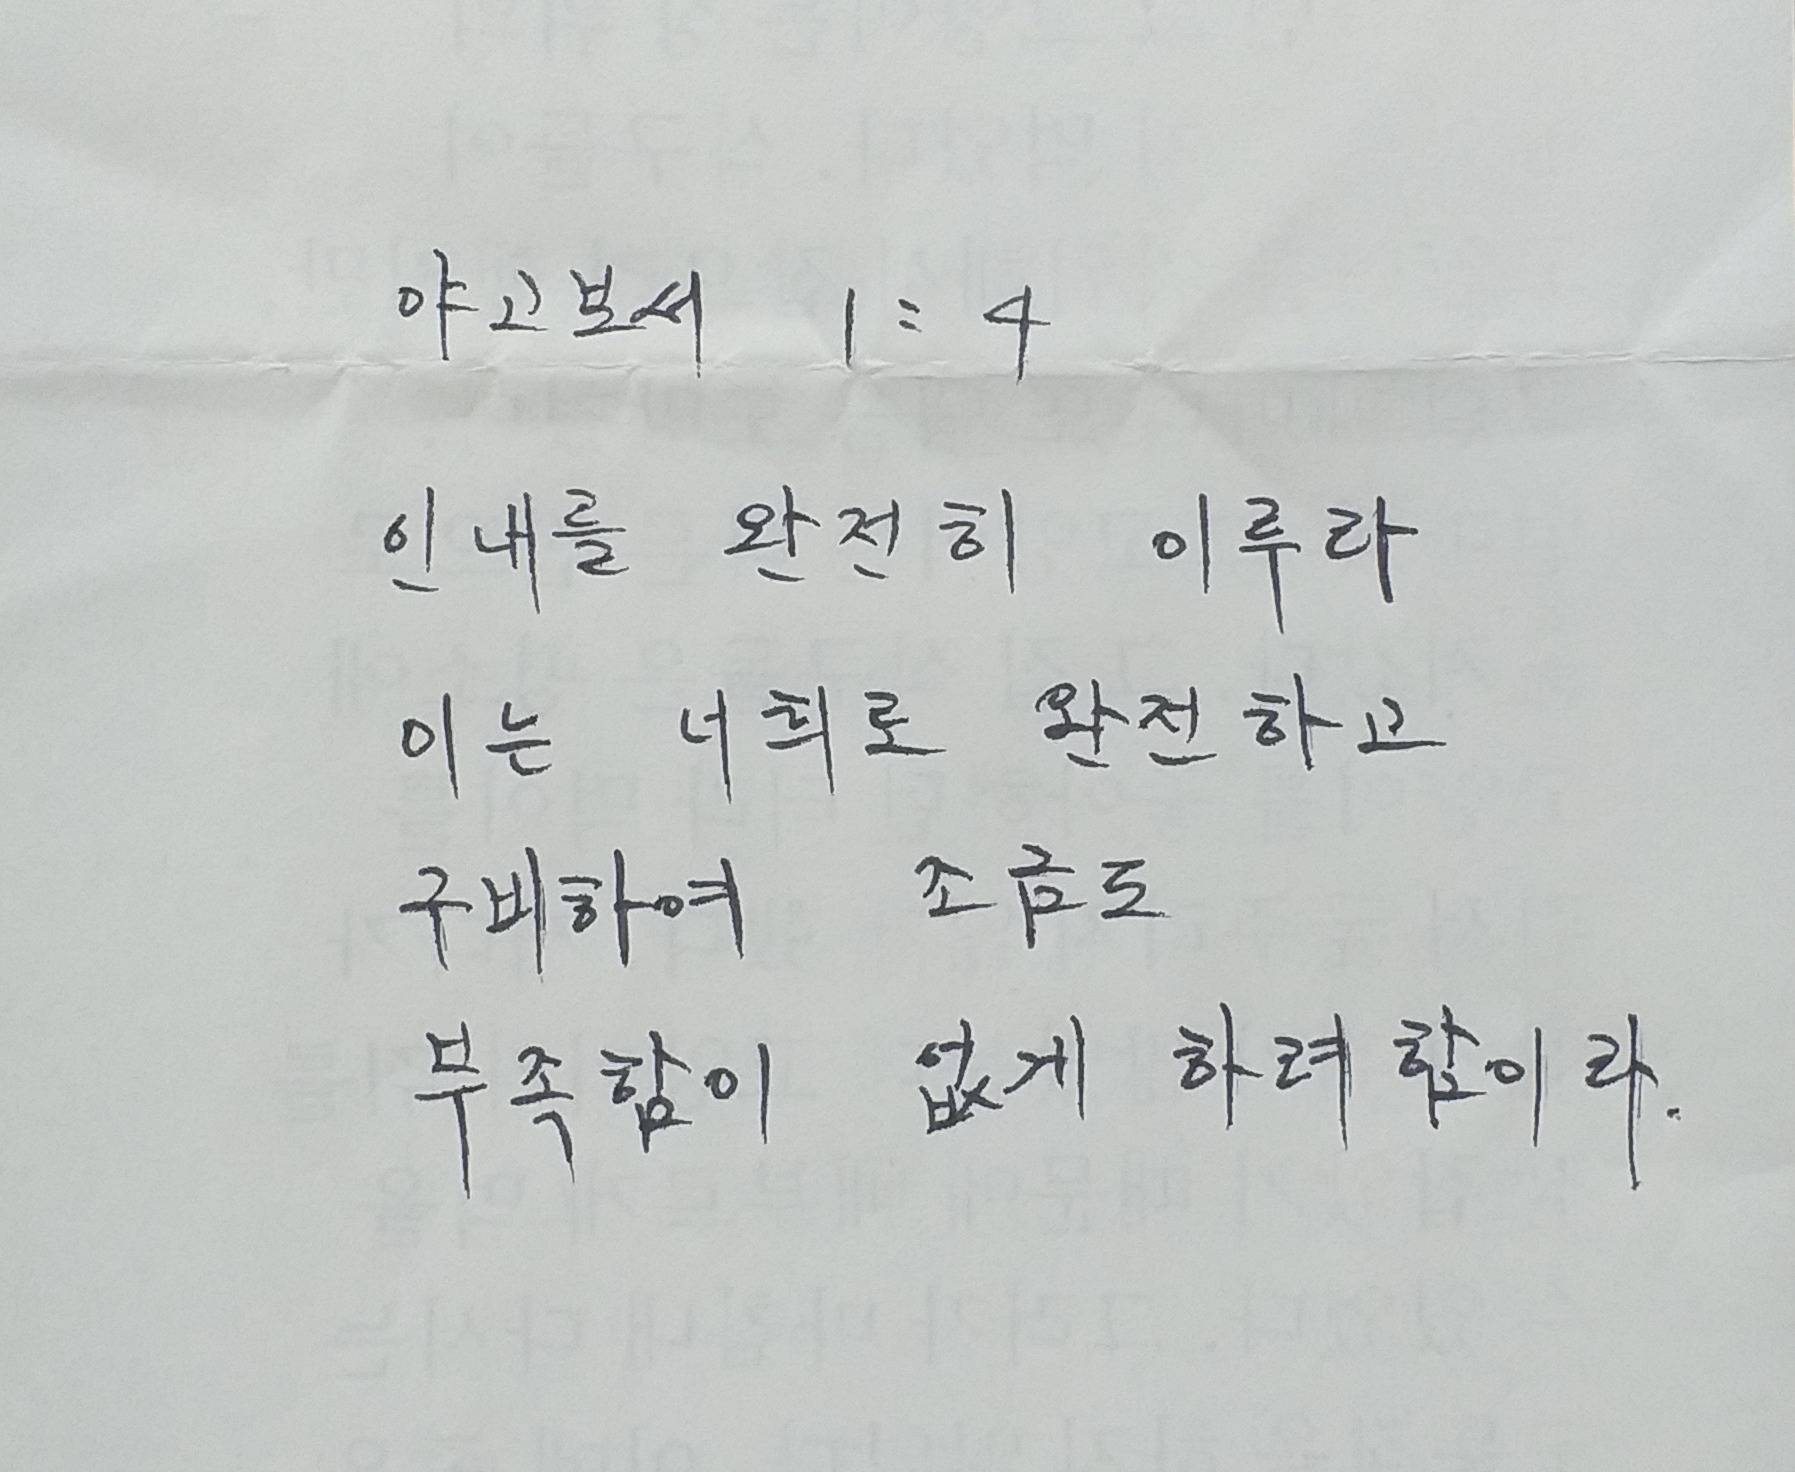 야고보서 1:4
인내를 완전히 이루라
이는 너희로 완전하고
구비하여 조금도
부족함이 없게 하려함이라.